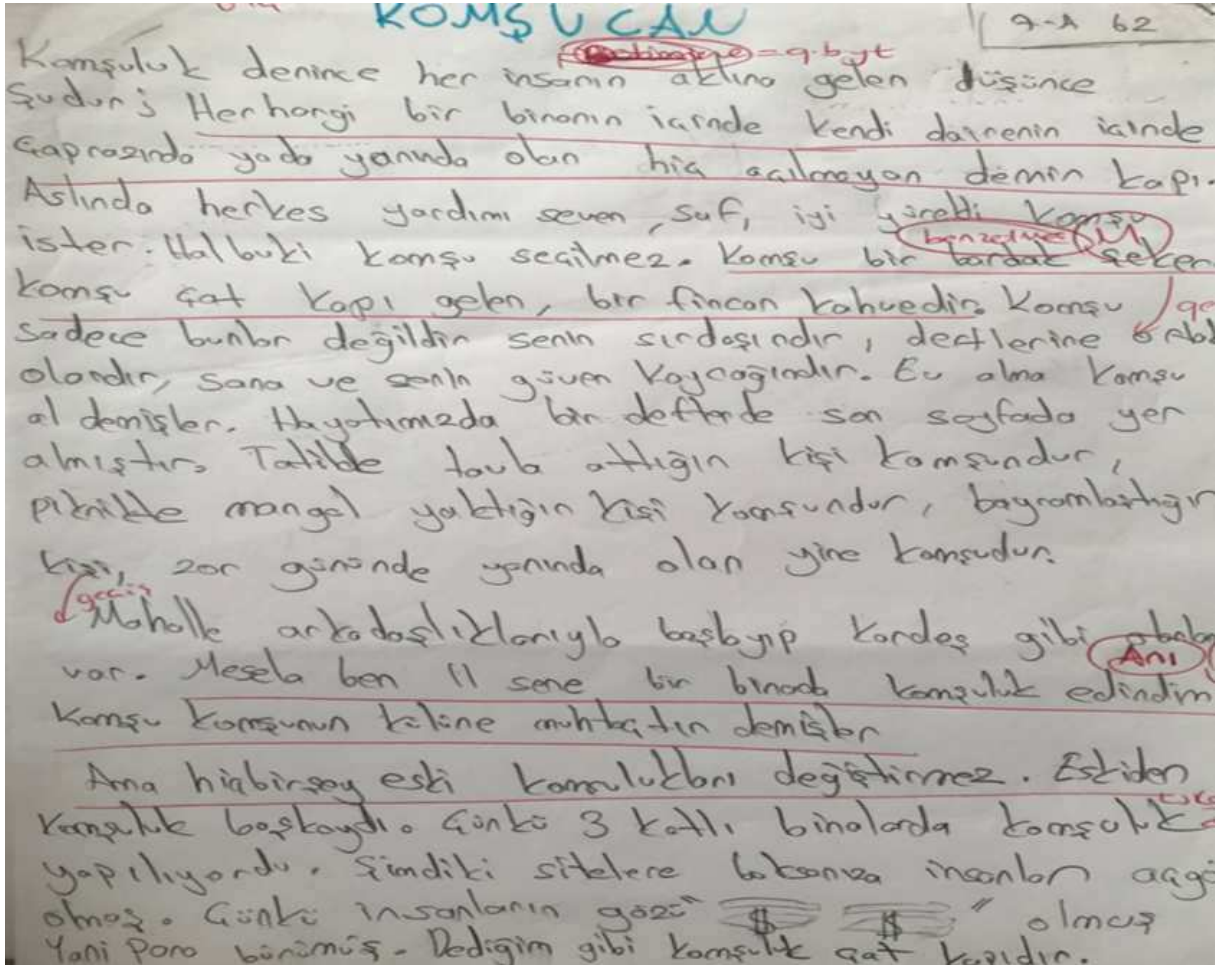 KOMŞU CAN
9-A 62
= g.byt
Komşuluk denince her insanın aklına gelen düşünce
şudur; Herhangi bir binanın içinde kendi dairenin içinde
çaprazında yada yanında olan hiç açılmayan demir kapı.
Aslında herkes yardımı seven, saf, iyi yürekli komşu
benzetme
ister. Halbuki komşu seçilmez. Komşu bir bardak şeker
komşu çat kapı gelen, bir fincan kahvedir. Komşu
sadece bunlar değildir senin sırdaşındır, dertlerine
olandır, sana ve senin güven kaynağındır. Ev alma komşu
al demişler. Hayatımızda bir defterde son sayfada yer
almıştır. Tatilde tavla attığın kişi komşundur,
piknikte mangal yaktığın kişi komşundur, bayramlaştığın
kişi, zor gününde yanında olan yine komşudur.
geçiş
Mahalle arkadaşlıklarıyla başlayıp kardeş gibi
Anı
var. Mesela ben 11 sene bir binada komşuluk edindim
Komşu komşunun külüne muhtaçtır demişler
Ama hiçbirşey eski komuluklarını değiştirmez. Eskiden
komşuluk başkaydı. Çünkü 3 katlı binalarda komşuluk
yapılıyordu. Şimdiki sitelere baksanıza insanlar açgö
olmuş. Çünkü insanların gözü " $ $ " olmuş
Yani para bürümüş. Dediğim gibi komşuluk çat kapıdır.